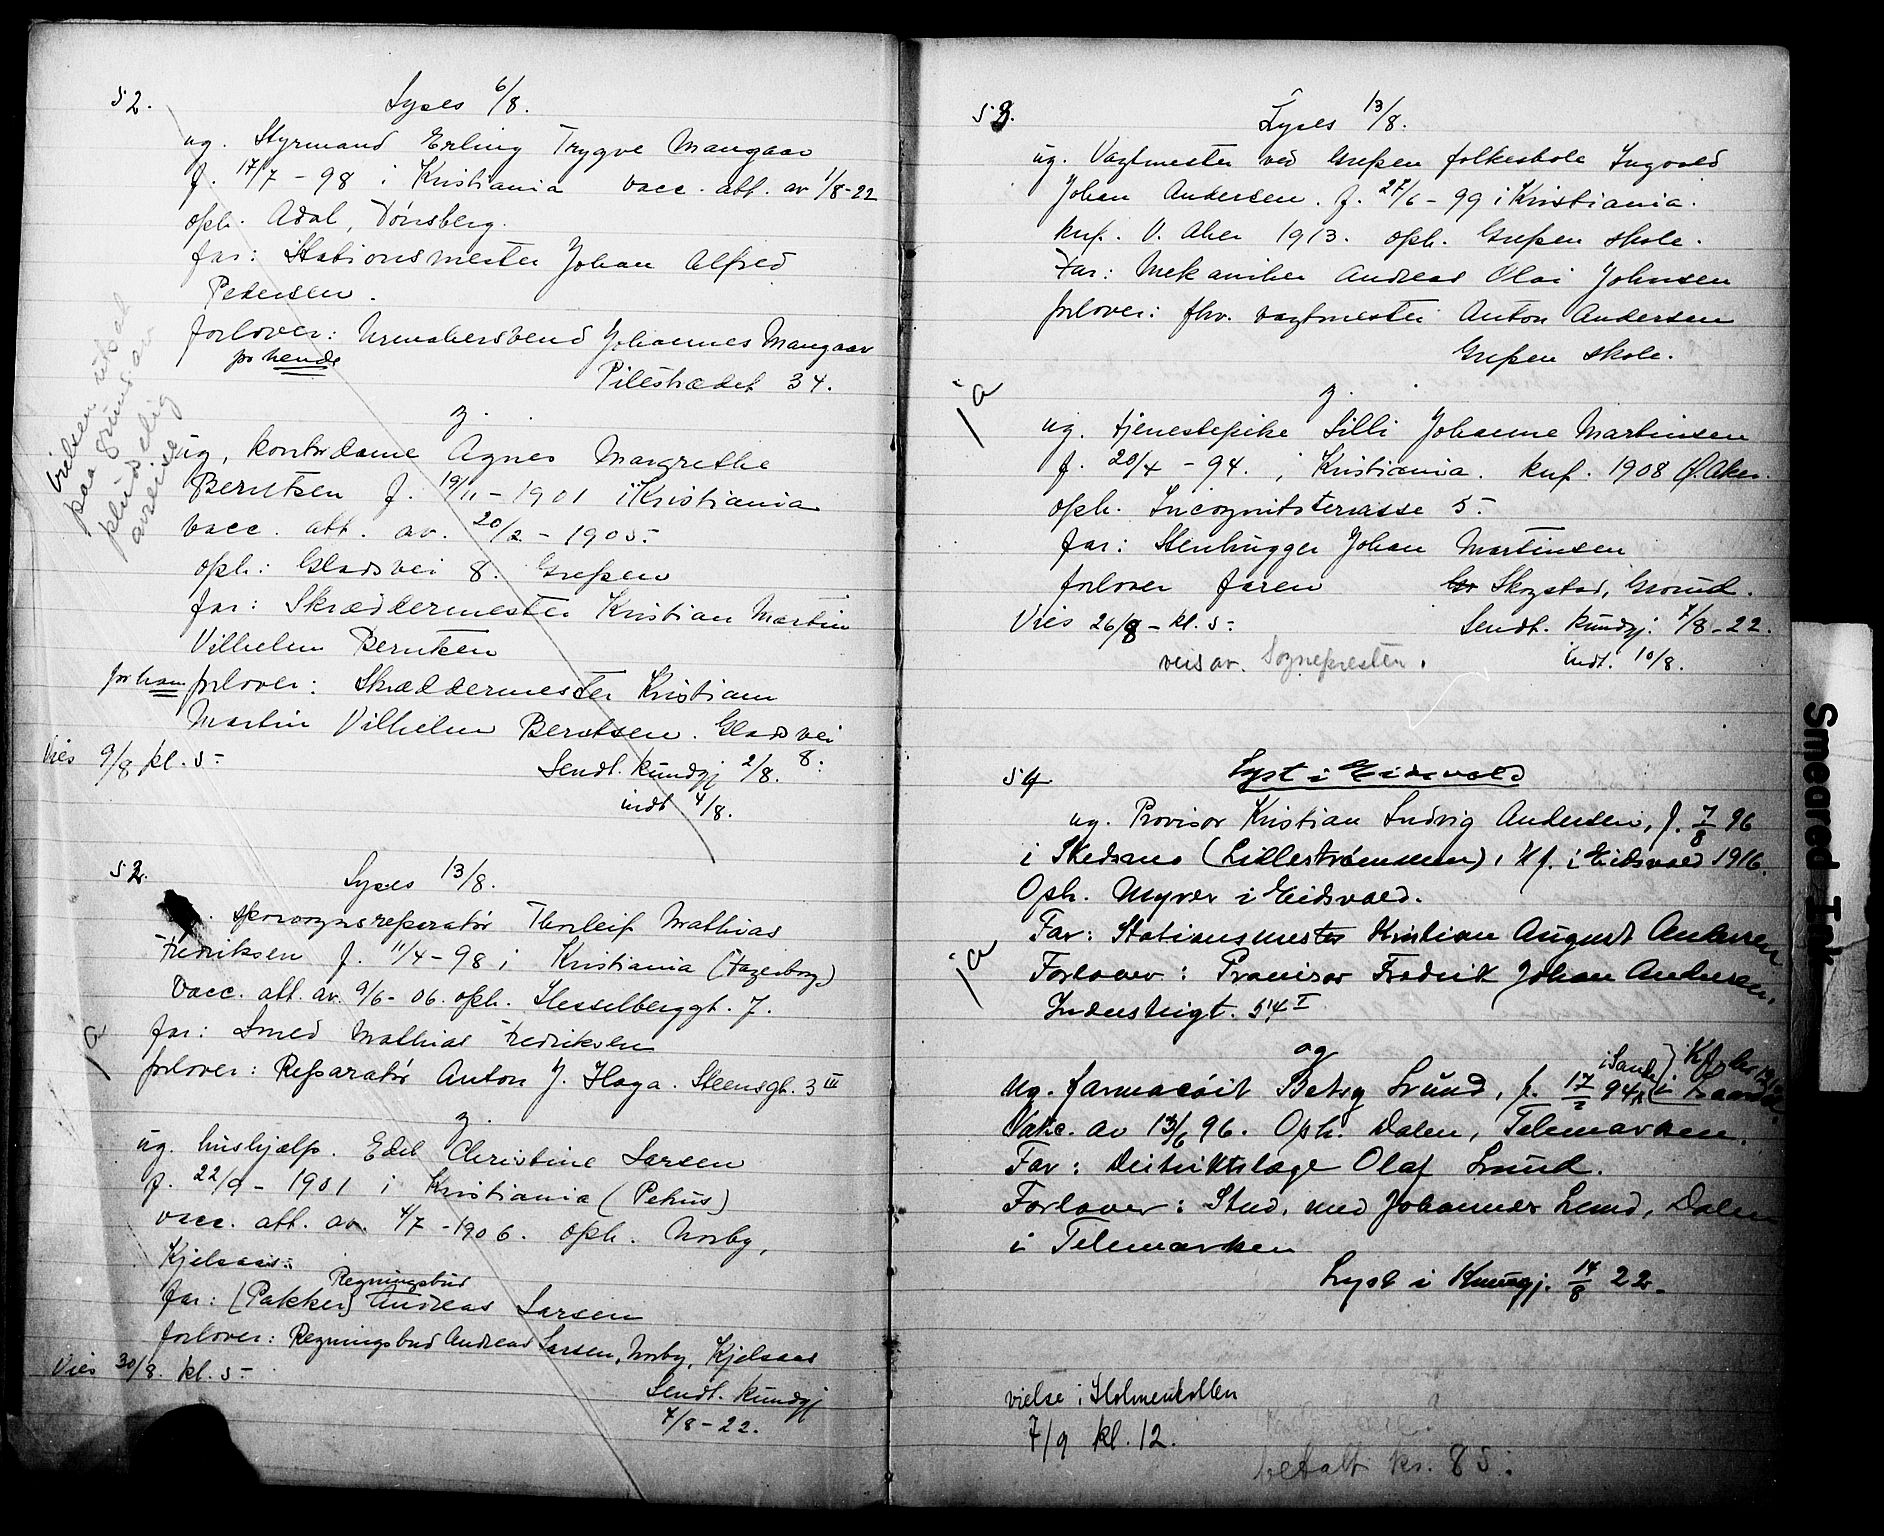 52. Lyses 6/8.
ug. Styrmand Erling Trygve Mangaar
f. 17/7 - 98 i Kristiania vacc. att. av 1/8-22
oph. Adal, Tönsberg.
far: Stationsmester Johan Alfred
Pedersen.
forlover: Urmakersvend Johannes Mangaar
for hende
Pilestrædet 34.
vielsen utsat
paa grund av
pludselig
avreise
og
ug. kontordame Agnes Margrethe
Berntsen f. 19/11 - 1901 i Kristiania
vacc. att. av. 20/2 - 1905.
oph.: Gladsvei 8. Grefsen
far: Skræddermester Kristian Martin
Vilhelm Berntsen
for ham forlover: Skræddermester Kristian
Martin Vilhelm Berntsen. Gladsvei
8.
Vies 9/8 kl. 5-
Sendt. kundgj 2/8.
indt 4/8.
52. Lyses 13/8.
sporvognsreparatør Thorleif Mathias
Fredriksen f. 11/4-98 i Kristiania (Fagerborg)
Vacc. att. av. 9/6-06. oph. Hesselberggt. 7.
far: Smed Mathias Fredriksen
ja
forlover: Reparatør Anton J. Haga. Steensgt. 3 III
og
ug. hushjælp. Edel Christine Larsen
f. 22/9 - 1901 i Kristiania (Petrus)
vacc. att. av. 4/7 - 1906. oph. Norby,
Kjelsaas.
Regningsbud
far: (Pakker) Andreas Larsen
forlover: Regningsbud Andreas Larsen, Norby, Kjelsaas
Vies 30/8. kl. 5-
Sendt. kundgj
7/8-22.
53. Lyses 13/8.
ug. Vagtmester ved Grefsen folkeskole Ingvald
Johan Andersen. f. 27/6 - 99 i Kristiania.
knf. V. Aker 1913. oph. Grefsen skole.
Far: Mekaniker Andreas Olai Johnsen
forlover: fhv. vagtmester Anton Andersen
Grefsen skole.
ja
og
ug. tjenestepike Lilli Johanne Martinsen
f. 20/4 - 94. i Kristiania. knf. 1908 Ø. Aker.
oph. Incognitoterrasse 5.
far: Stenhugger Johan Martinsen
forlover faren Skogstad, Grorud.
Vies 26/8 - kl. 5-
Sendt. kundgj. 7/8-22.
indt. 10/8.
vies av. Sognepresten.
54 Lyst i Eidsvold
ug. Provisor Kristian Ludvig Andersen, f. 7/8 96
i Skedsmo (Lillestrømmen), Kf. i Eidsvold 1916.
Oph. Myrer i Eidsvold.
Far: Stationsmester Kristian August Andersen
ja
Forlover: Provisor Fredrik Johan Andersen,
Industrigt. 54 I
og
ug. farmacöit Betsy Lund, f. 17/2 94
Vakc. av 13/6 96. Oph. Dalen, Telemarken.
Far: Distriktslæge Olaf Lund.
Forlover: Stud. med Johannes Lund, Dalen
i Telemarken
Lyst i Kundgj. 14/8 22.
vielse i Holmenkollen
7/9 kl. 12.
betalt kr. 85.
Smeared Ink